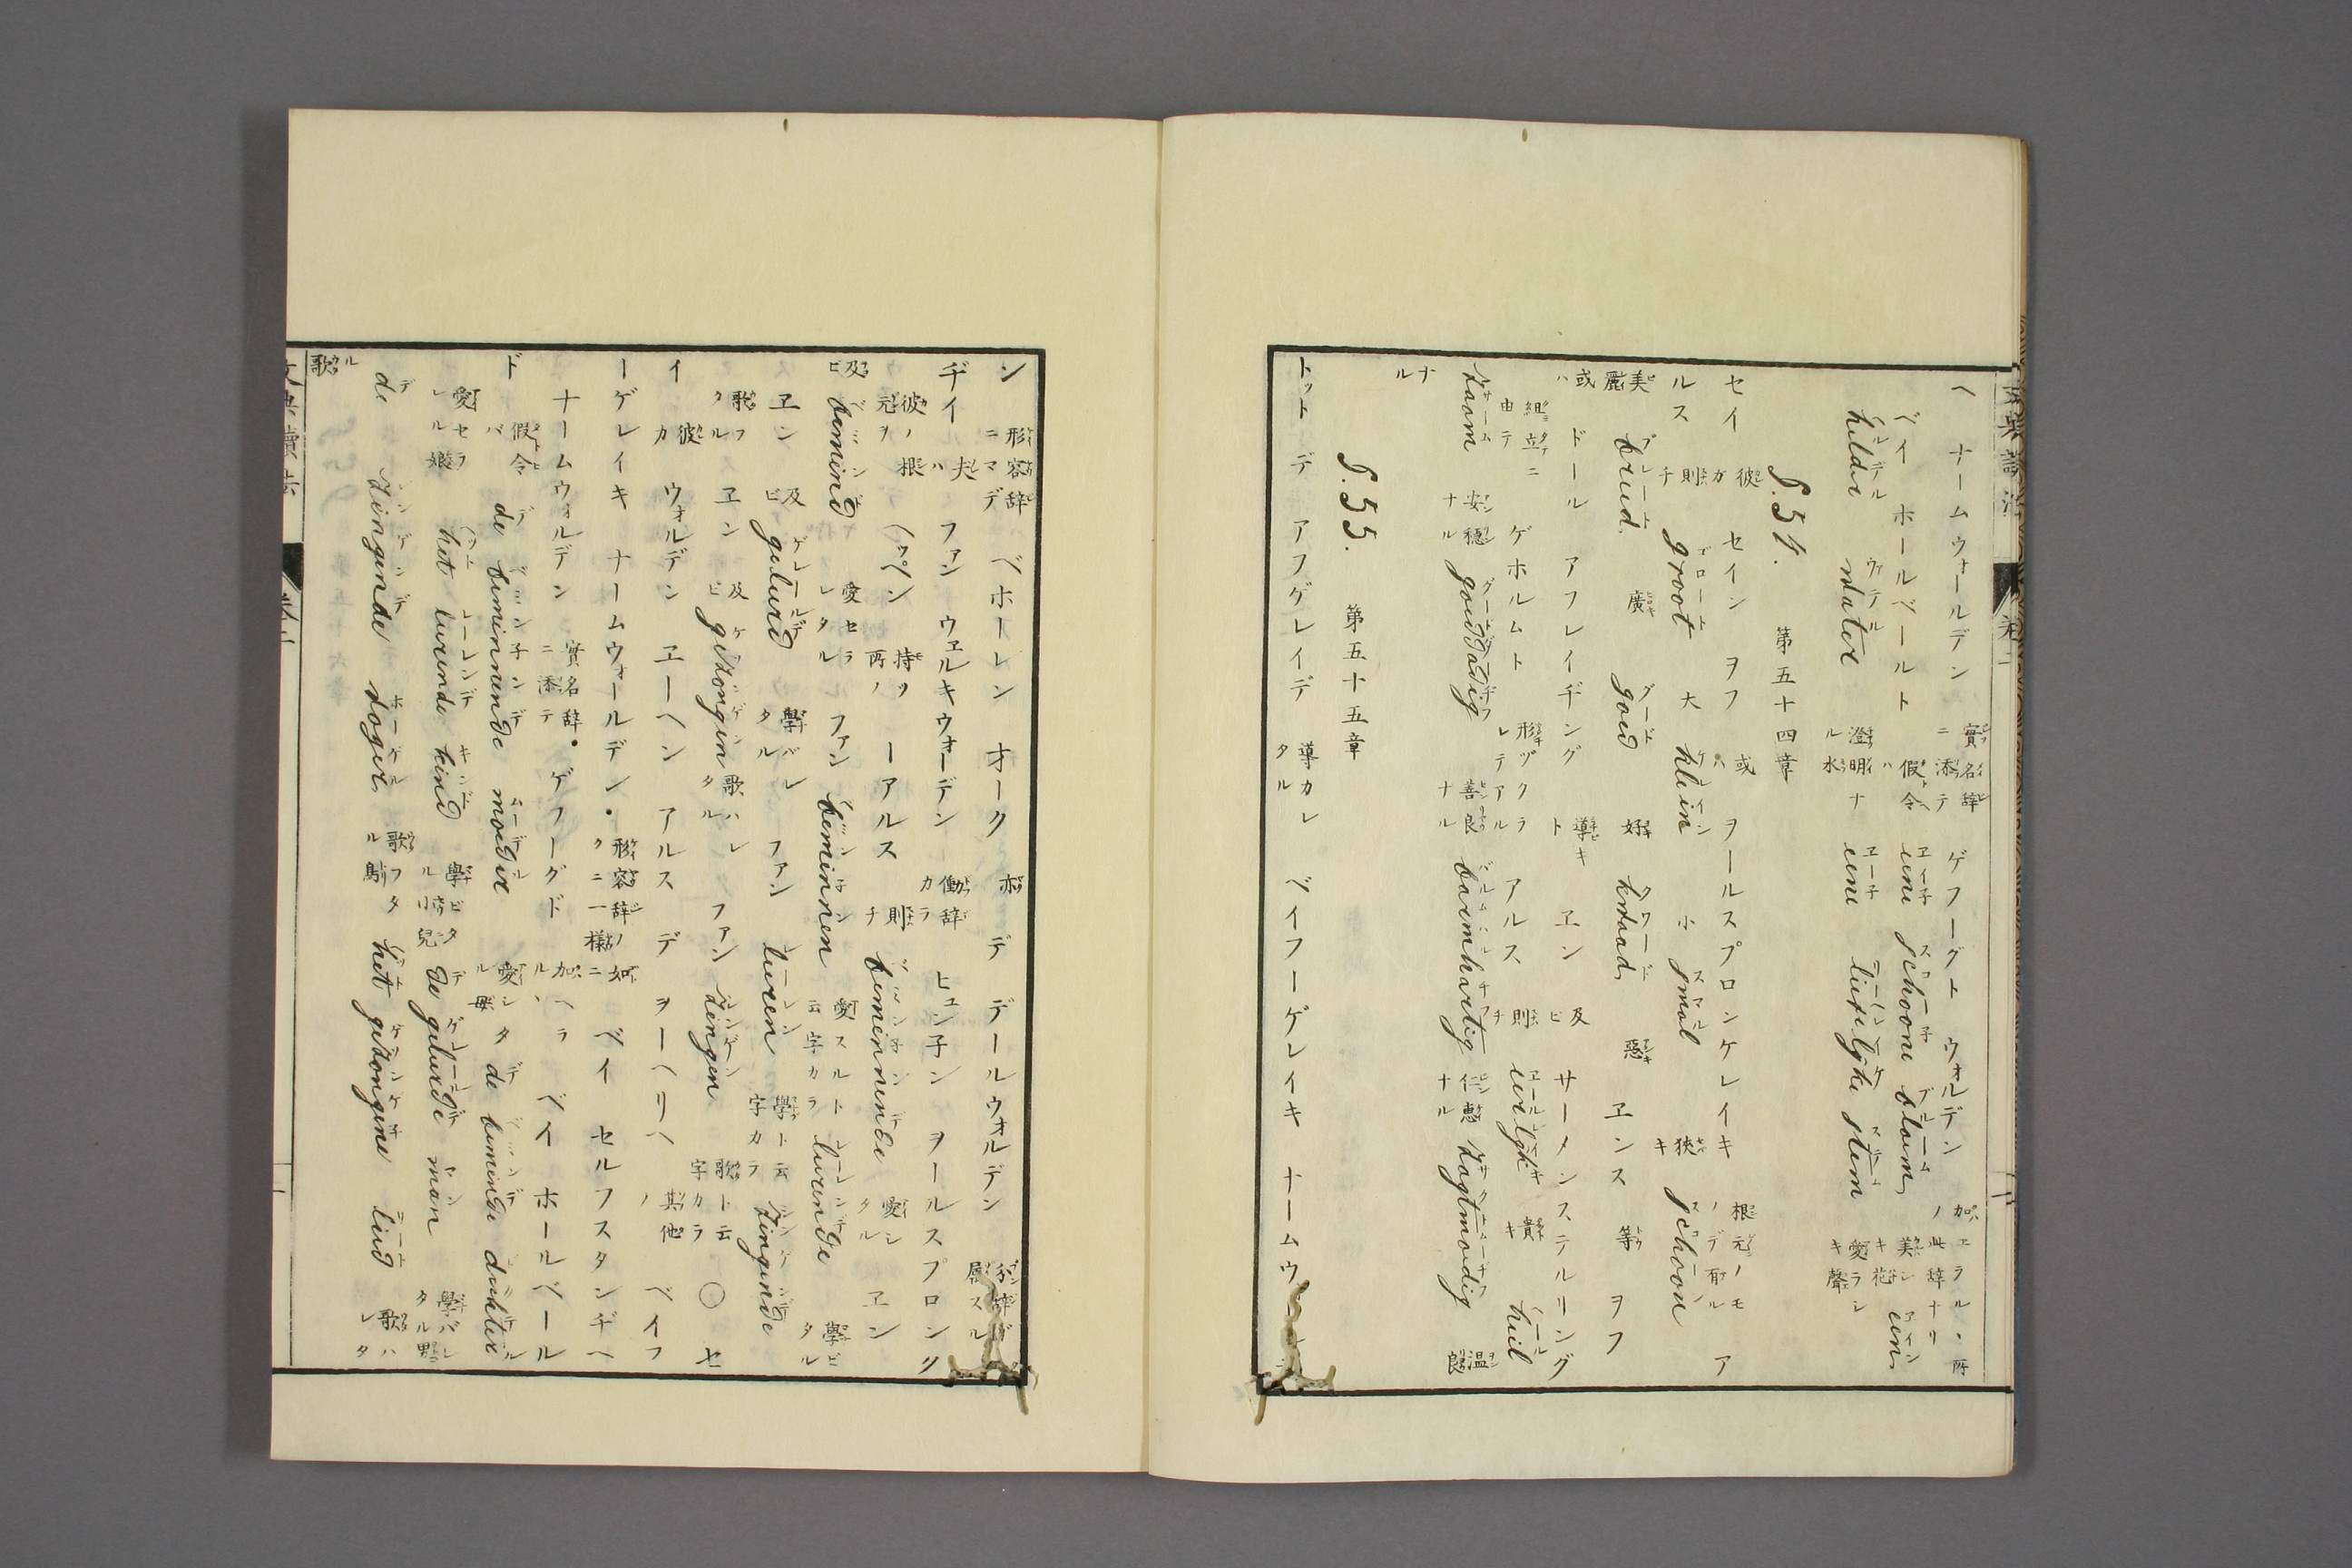 ヘ ナームウォールデン 實名辞ニ添テ ゲフーグト ウォルデン 加エラル・所ノ此辞ナリ
ベイ ホールベールト 假令ハ eene schoone bloem, 美シキ花 een
helder water 澄明ナル水 eene liefelijke stem 愛ラシキ聲
§. 54. 第五十四章
セイ 彼カ セイン ヲフ 或ハ ヲールスプロンケレイキ 根元ノモノデ有ル ア
ルス 則チ groot 大 klein 小 smal 狹キ schoon
美麗 breed. 廣 goed 好 kwaad, 惡 エンス 等 ヲフ
或ハ ドール アフレイヂング 導キト エン 及ビ サーメンステルリング
組立ニ由テ ゲホルムト 形ヅクラレテアル アルス 則チ eerlijk 貴キ heil
zaam 安穩ナル goeddadig 善良ナル barmhartig 仁惠ナル zagtmoedig 温良
ナル
§. 55. 第五十五章
トット デ アフゲレイデ 導カレタル ベイフーゲレイキ ナームウ
ン 形容辞ニマデ ベホーレン オーク 亦 デ デールウォルデン 分辞ガ属スル
ヂイ 夫ハ ファン ウェルキウォーデン 働辞カラ ヒュン子ン ヲールスプロンク
彼ノ根元ヲ ヘッペン 持ツ所ノ ーアルス 則チ beminnende 愛シタル エン
及ビ bemind 愛セラレタル ファン beminnen 愛スルト云字カラ leerende 學ビタル
エン 及ビ geleerd 學バレタル ファン leeren 學ト云字カラ zingende
歌フタル エン 及ビ gezongen 歌ハレタル ファン zingen 歌ト云字カラ ○ セ
イ 彼カ ウォルデン エーヘン アルス デ ヲーヘリヘ 其他ノ ベイフ
ーゲレイキ ナームウォールデン・ 形容辞ノ如クニ一様ニ ベイ セルフスタンヂヘ
ナームウォルデン 實名辞ニ添テ・ ゲフーグド 加ヘラル、 ベイ ホールベール
ド 假令バ de beminnende moeder 愛シタル母 de beminde dochter
愛セラレル娘 het leerende kind 學ビタル小兒 de geleerde man 學バレタル男
de zingende vogel 歌フタル鳥 het gezongene lied 歌ハレタ
ル歌